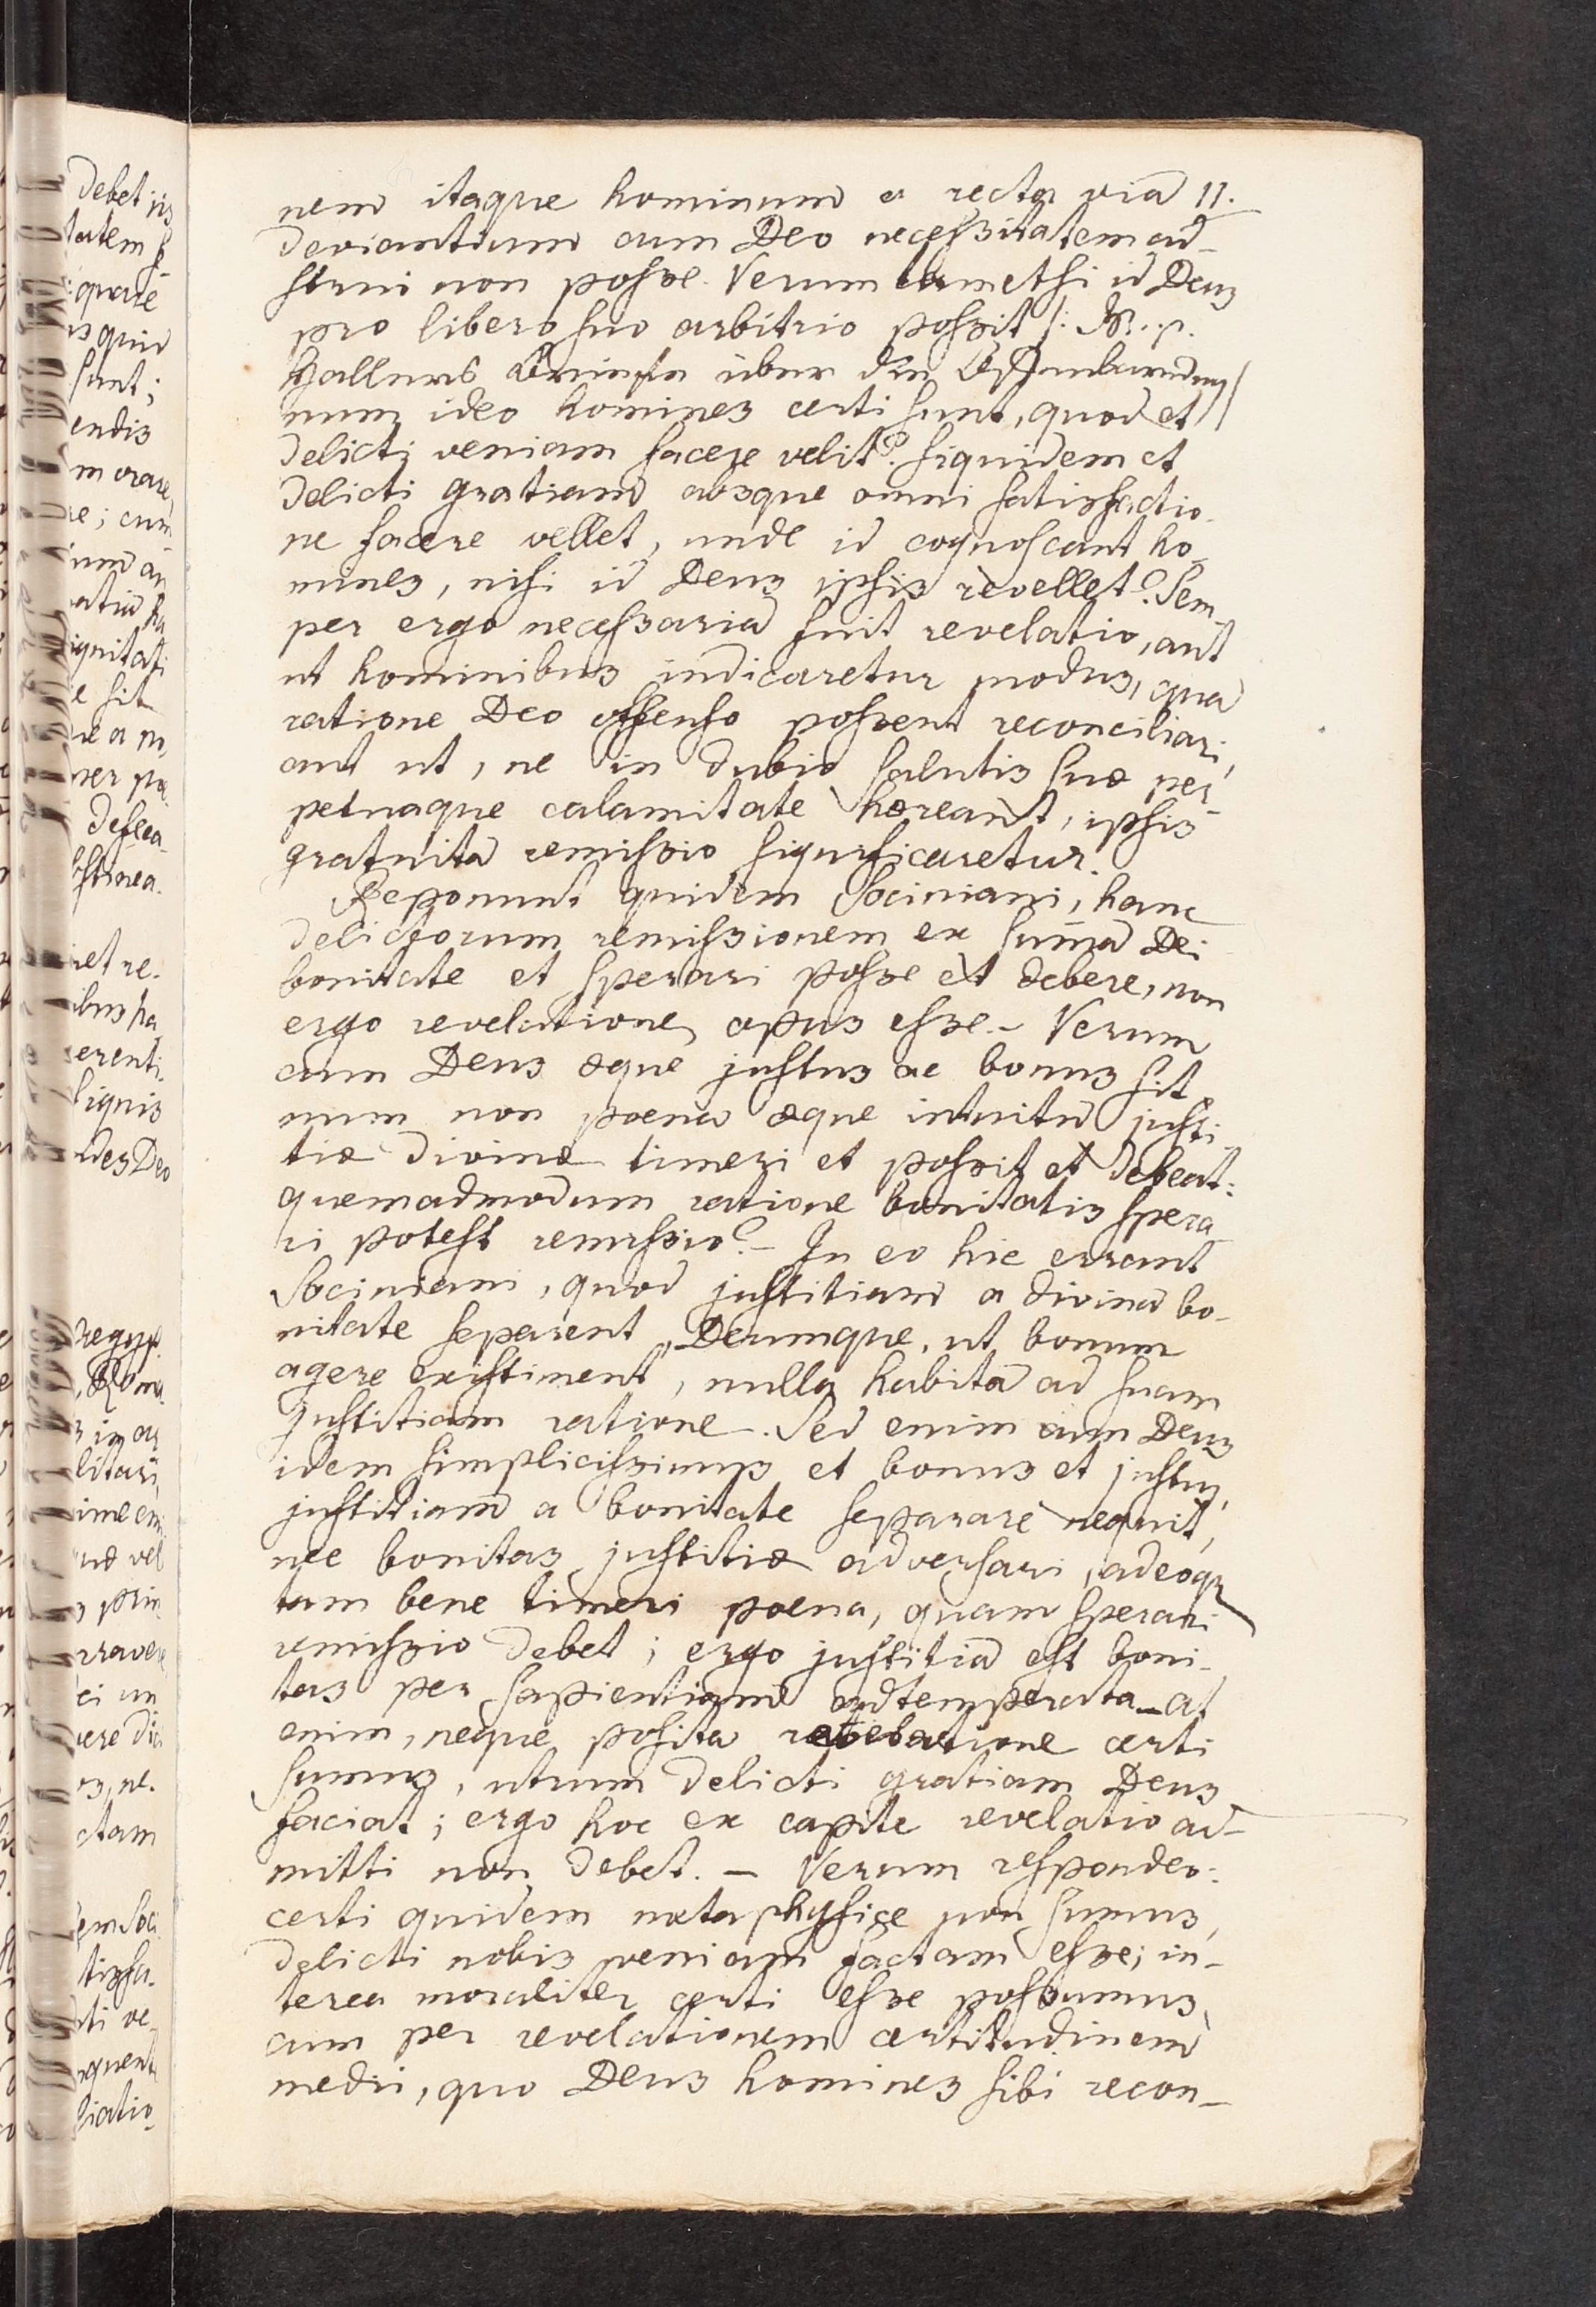 Debet jis
tatem
quare
quid
sunt;
endis
m orare,
re; cum
um an
ignitati
e sit
ne a m
ner poe
Defica-
bstinea.
ret re.
ibus pa
erenti.
lignis
des Deo
vel
prin
rravere
ei un
vere dic
os, ne.
ctam
em Soci
tisfa.
ti ve-
quent
liatio-
nem itaque hominum a recta via 11.
deviantium cum Deo necessitatem ad-
strui non posse. Verum tametsi id Deus
pro libero suo arbitrio possit /: .p.
Hallers Briefe über die Offenbarung /
num ideo homines certi sunt, quod et
delicti veniam facere velit? siquidem et
delicti gratiam absque omni satisfactio-
ne facere vellet, unde id cognoscant ho-
mines, nisi id Deus ipsis revellet? Sem-
per ergo necessaria fuit revelatio, aut
ut hominibus indicaretur modus, qua
ratione Deo offenso possent reconciliari,
aut ut, ne in dubio salutis suæ per-
petuaque calamitate hæreant, ipsis
gratuita remissio significaretur.
Reponunt quidem Sociniani, hanc
delictorum remissionem ex summa Dei
bonitate et sperari posse et debere, non
ergo revelatione opus esse. – Verum
cum Deus æque justus ac bonus sit
num non poena æque intuitu justi-
tiæ divinæ timeri et possit et debeat:
quemadmodum ratione bonitatis spera-
ri potest remissio? – In eo hic errant
Sociniani, quod justitiam a divina bo-
nitate separent, Deumque, ut bonum
agere existiment, nulla habita ad suam
justitiam ratione. Sed enim cum Deus
idem simplicissimus et bonus et justus,
justitiam a bonitate separare nequit,
nec bonitas justitiæ adversari, adeoque
tam bene timeri poena, quam sperari
remissio debet; ergo justitia est boni-
tas per sapientiam adtemperata – at
enim, neque posita revelatione certi
sumus, utrum delicti gratiam Deus
faciat; ergo hoc ex capite revelatio ad-
mitti non debet. – Verum respondeo:
certi quidem metaphysice non sumus,
delicti nobis veniam factam esse; in-
terea moraliter certi esse possumus,
cum per revelationem certitudinem
medii, quo Deus homines sibi recon-